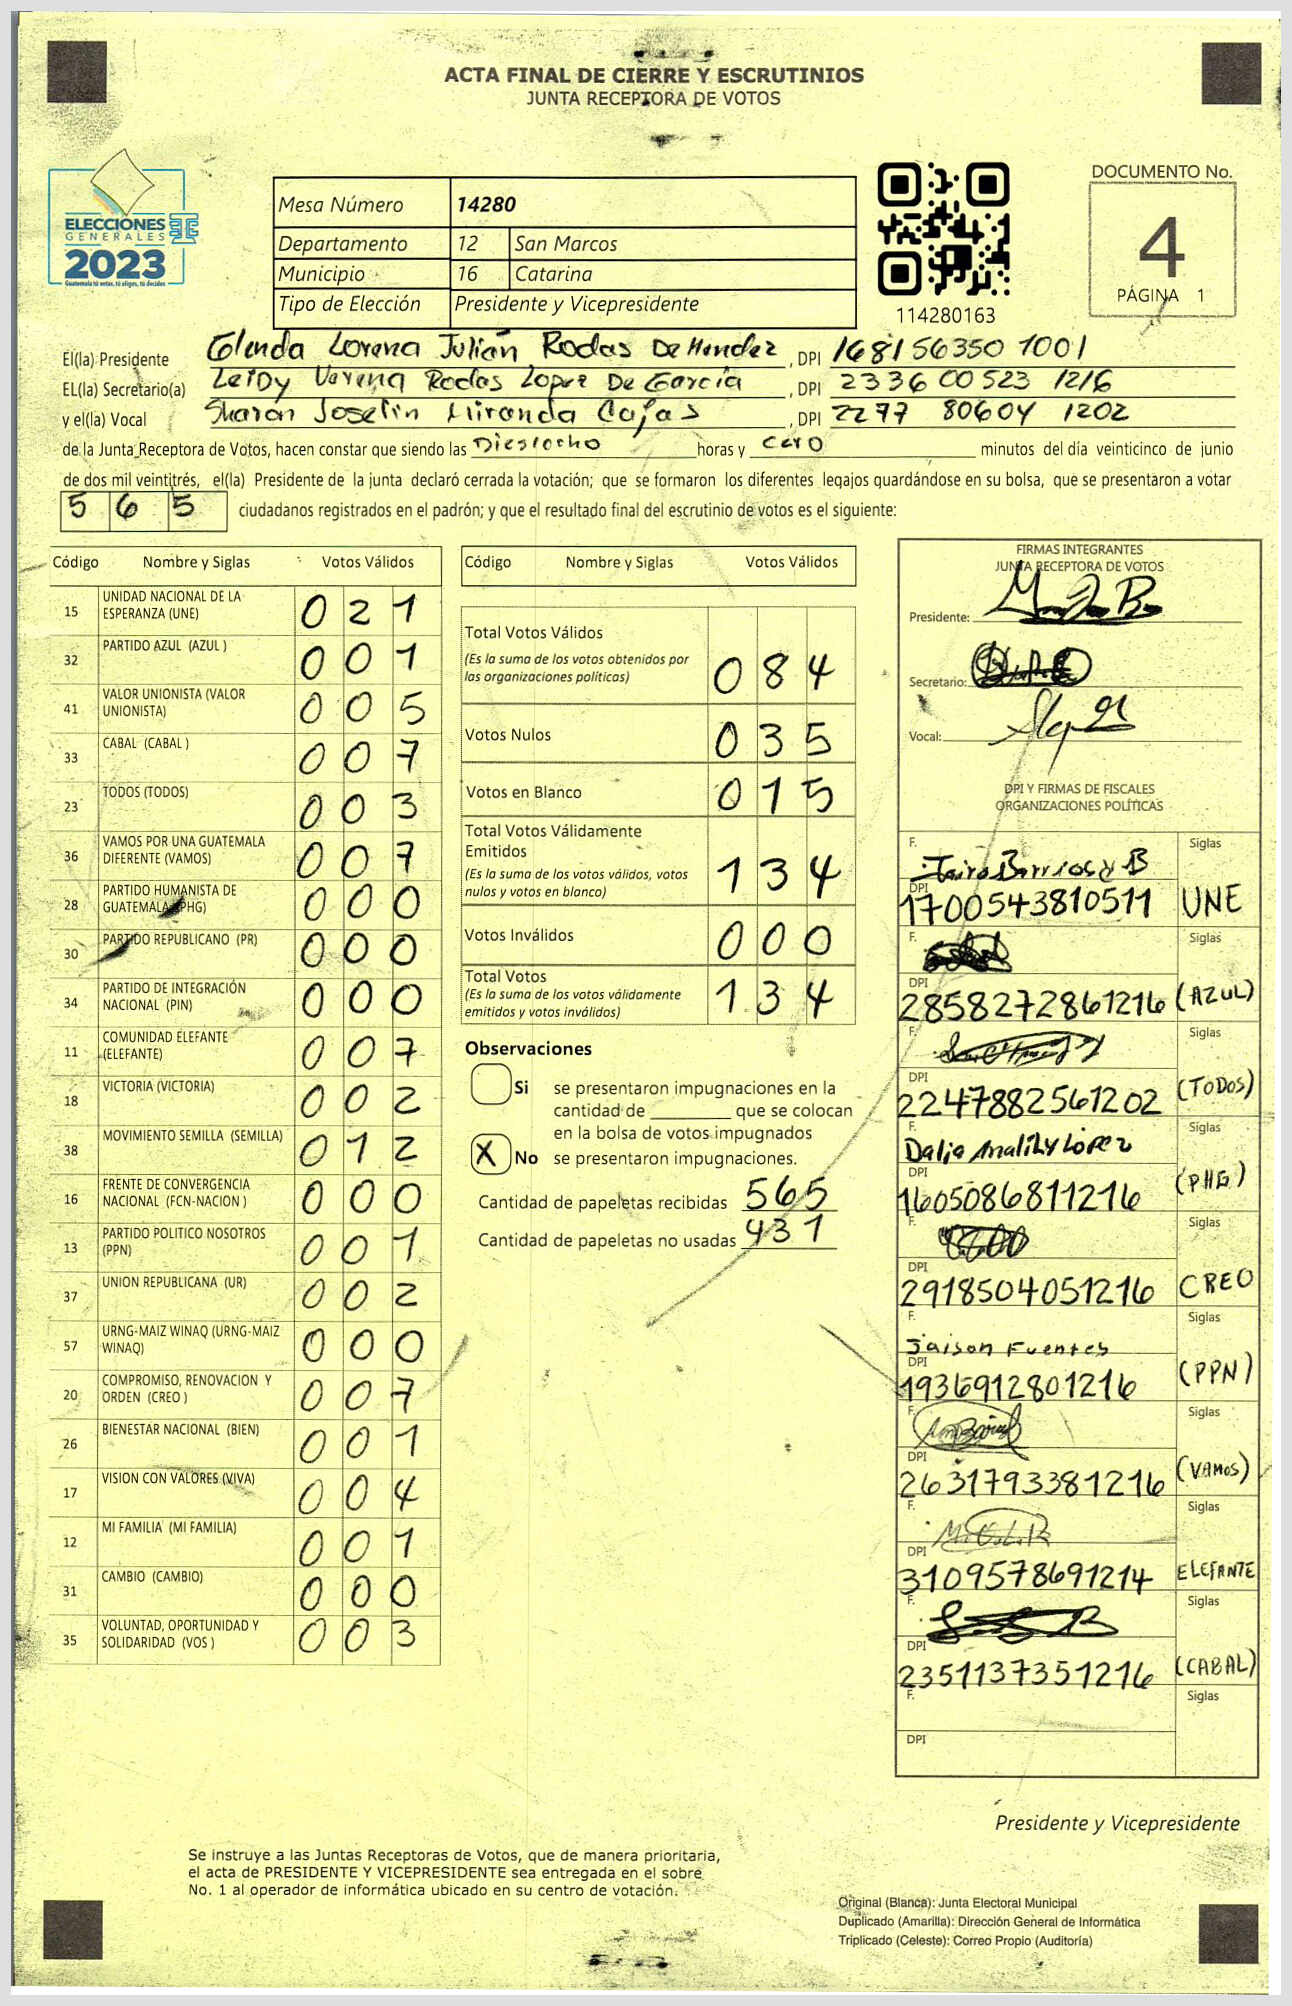 ACTA FINAL DE CIERRE Y ESCRUTINIOS
JUNTA RECEPTORA DE VOTOS
ELECCIONES
GENERALES
2023
Guatemala tú votas, tú eliges, tú decides
Mesa Número 14280
Departamento 12 San Marcos
Municipio 16 Catarina
Tipo de Elección Presidente y Vicepresidente
114280163
DOCUMENTO No.
4
PÁGINA 1
El(la) Presidente Glenda Lorena Julián Rodas De Mendez, DPI 168156350 1001
EL(la) Secretario(a) Leidy Verena Rodas Lopez De García, DPI 2336 00523 1216
y el(la) Vocal Sharon Joselin Miranda Cajas, DPI 2277 80604 1202
de la Junta Receptora de Votos, hacen constar que siendo las Dieciocho horas y cero minutos del día veinticinco de junio
de dos mil veintitrés, el(la) Presidente de la junta declaró cerrada la votación; que se formaron los diferentes legajos guardándose en su bolsa, que se presentaron a votar
565 ciudadanos registrados en el padrón; y que el resultado final del escrutinio de votos es el siguiente:
Código Nombre y Siglas Votos Válidos
15 UNIDAD NACIONAL DE LA ESPERANZA (UNE) 021
32 PARTIDO AZUL (AZUL ) 001
41 VALOR UNIONISTA (VALOR UNIONISTA) 005
33 CABAL (CABAL ) 007
23 TODOS (TODOS) 003
36 VAMOS POR UNA GUATEMALA DIFERENTE (VAMOS) 007
28 PARTIDO HUMANISTA DE GUATEMALA (PHG) 000
30 PARTIDO REPUBLICANO (PR) 000
34 PARTIDO DE INTEGRACIÓN NACIONAL (PIN) 000
11 COMUNIDAD ELEFANTE (ELEFANTE) 007
18 VICTORIA (VICTORIA) 002
38 MOVIMIENTO SEMILLA (SEMILLA) 012
16 FRENTE DE CONVERGENCIA NACIONAL (FCN-NACION ) 000
13 PARTIDO POLITICO NOSOTROS (PPN) 001
37 UNION REPUBLICANA (UR) 002
57 URNG-MAIZ WINAQ (URNG-MAIZ WINAQ) 000
20 COMPROMISO, RENOVACION Y ORDEN (CREO ) 007
26 BIENESTAR NACIONAL (BIEN) 001
17 VISION CON VALORES (VIVA) 004
12 MI FAMILIA (MI FAMILIA) 001
31 CAMBIO (CAMBIO) 000
35 VOLUNTAD, OPORTUNIDAD Y SOLIDARIDAD (VOS ) 003
Código Nombre y Siglas Votos Válidos
Total Votos Válidos 084
(Es la suma de los votos obtenidos por
las organizaciones políticas)
Votos Nulos 035
Votos en Blanco 015
Total Votos Válidamente
Emitidos 134
(Es la suma de los votos válidos, votos
nulos y votos en blanco)
Votos Inválidos 000
Total Votos 134
(Es la suma de los votos válidamente
emitidos y votos inválidos)
Observaciones
Si se presentaron impugnaciones en la
cantidad de ________ que se colocan
en la bolsa de votos impugnados
X No se presentaron impugnaciones.
Cantidad de papeletas recibidas 565
Cantidad de papeletas no usadas 431
FIRMAS INTEGRANTES
JUNTA RECEPTORA DE VOTOS
Presidente:
Secretario:
Vocal:
DPI Y FIRMAS DE FISCALES
ORGANIZACIONES POLÍTICAS
F. Jairo Barrios y B Siglas
DPI 1700543810511 UNE
F. Siglas
DPI 2858272861216 (AZUL)
F. Siglas
DPI 2247882561202 (TODOS)
F. Dalia Analihy López Siglas
DPI 1605086811216 (PHG)
F. Siglas
DPI 2918504051216 CREO
F. Jaison Fuentes Siglas
DPI 1936912801216 (PPN)
F. Siglas
DPI 2631793381216 (VAMOS)
F. Siglas
DPI 3109578691214 ELEFANTE
F. Siglas
DPI 2351137351216 (CABAL)
F. Siglas
DPI
Presidente y Vicepresidente
Se instruye a las Juntas Receptoras de Votos, que de manera prioritaria,
el acta de PRESIDENTE Y VICEPRESIDENTE sea entregada en el sobre
No. 1 al operador de informática ubicado en su centro de votación.
Original (Blanca): Junta Electoral Municipal
Duplicado (Amarilla): Dirección General de Informática
Triplicado (Celeste): Correo Propio (Auditoría)